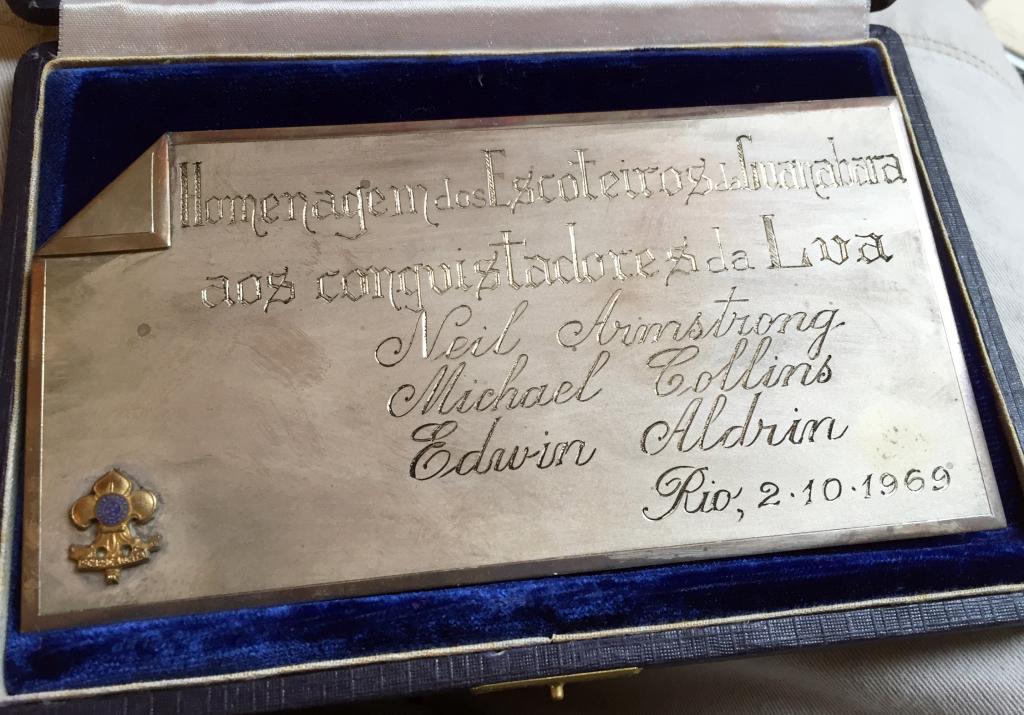 Homenagem dos Escoteiros da Guanabara
aos conquistadores da Lua
Neil Armstrong
Michael Collins
Edwin Aldrin
Rio, 2·10·1969